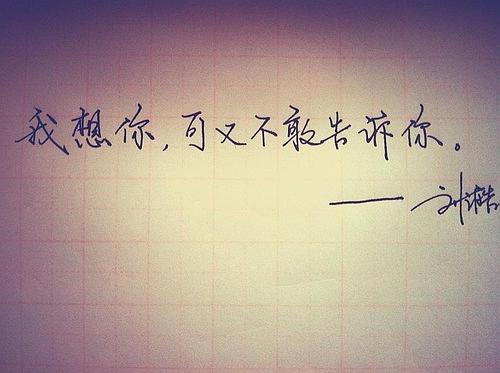 我想你,可又不敢告诉你。
——刘洪